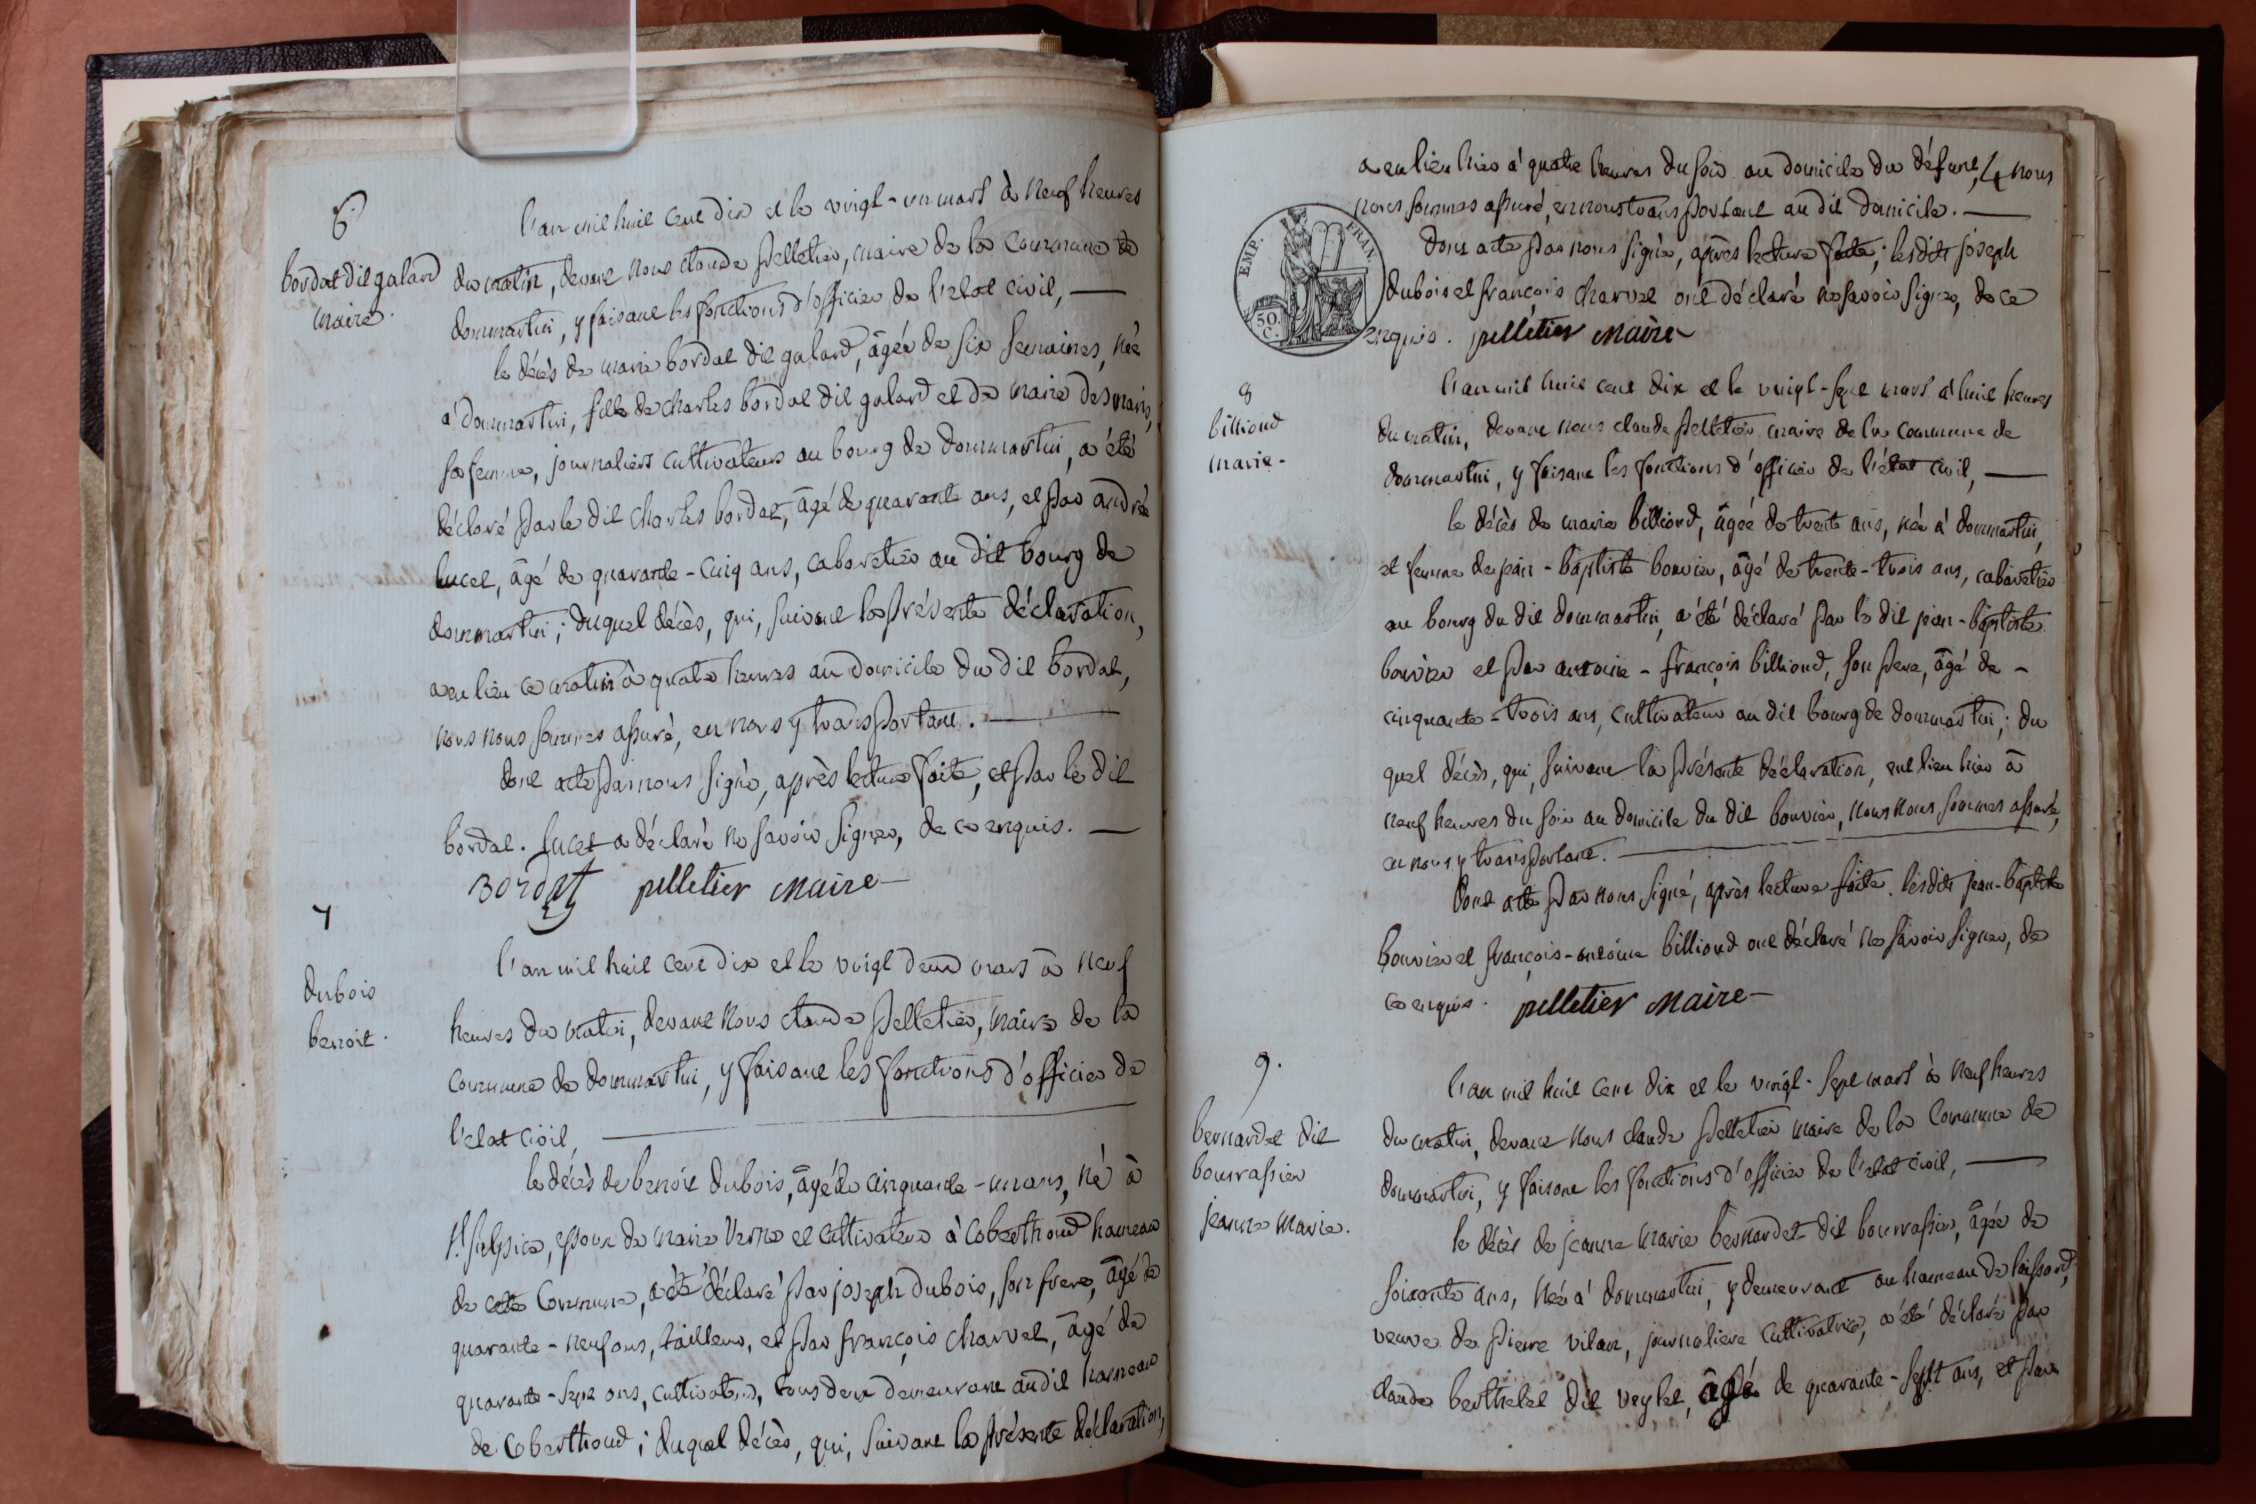 6
bordat dit galard
marie.
l'an mil huit cent dix et le vingt-un mars à neuf heures
du matin, devant nous claude pelletier, maire de la commune de
dommartin, y faisant les fonctions d'officier de l'etat civil,
le décès de marie bordat dit galard, âgée de six semaines, née
à dommartin, fille de charles bordat dit galard et de marie desmaris,
sa femme, journaliers cultivateurs au bourg de dommartin, a été
déclaré par le dit charles bordat, âgé de quarante ans, et par andré
lucet, âgé de quarante-cinq ans, cabaretier au dit bourg de
dommartin; duquel décès, qui, suivant la présente déclaration,
a eu lieu ce matin à quatre heures au domicile du dit bordat,
nous nous sommes assuré, en nous y transportant.
dont acte par nous signé, après lecture faite, et par le dit
bordat. lucet a déclaré ne savoir signer, de ce enquis.
Bordat pelletier maire
7
dubois
benoit.
l'an mil huit cent dix et le vingt deux mars à neuf
heures du matin, devant nous claude pelletier, maire de la
commune de dommartin, y faisant les fonctions d'officier de
l'etat civil,
le décès de benoit dubois, âgé de cinquante-un ans, né à
St. sulpice, epoux de marie Verne et cultivateur à Coberthoud hameau
de cette Commune, a été déclaré par joseph dubois, son frere, âgé de
quarante-neuf ans, tailleur, et par françois charvet, âgé de
quarante-sept ans, cultivateur, tous deux demeurant audit hameau
de Coberthoud; duquel décès, qui, suivant la présente déclaration,
a eu lieu hier à quatre heures du soir au domicile du défunt, nous
nous sommes assuré, en nous transportant au dit domicile.
EMP. FRAN.
50.
C.
dont acte par nous signé, après lecture faite; lesdits joseph
dubois et françois charvet ont déclaré ne savoir signer, de ce
enquis. pelletier maire
8
billioud
marie.
l'an mil huit cent dix et le vingt-sept mars à huit heures
du matin, devant nous claude pelletier maire de la commune de
dommartin, y faisant les fonctions d'officier de l'état civil,
le décès de marie billioud, âgée de trente ans, née à dommartin,
et femme de jean-baptiste bouvier, âgé de trente-trois ans, cabaretier
au bourg du dit dommartin, a été déclaré par le dit jean-baptiste
bouvier et par antoine-françois billioud, son pere, âgé de
cinquante-trois ans, cultivateur au dit bourg de dommartin; du
quel décès, qui, suivant la présente déclaration, eut lieu hier à
neuf heures du soir au domicile du dit bouvier, nous nous sommes assuré,
en nous y transportant.
dont acte par nous signé, après lecture faite. lesdits jean-baptiste
bouvier et françois-antoine billioud ont déclaré ne savoir signer, de
ce enquis. pelletier maire
9.
bernardet dit
bourrassier
jeanne marie.
l'an mil huit cent dix et le vingt-sept mars à neuf heures
du matin, devant nous claude pelletier maire de la Commune de
dommartin, y faisant les fonctions d'officier de l'etat civil,
le décès de jeanne marie bernardet dit bourrassier, âgée de
soixante ans, née à dommartin, y demeurant au hameau de
veuve de pierre vilar, journaliere cultivatrice, a été déclaré par
claude berthelet dit veylet, âgé de quarante-sept ans, et par